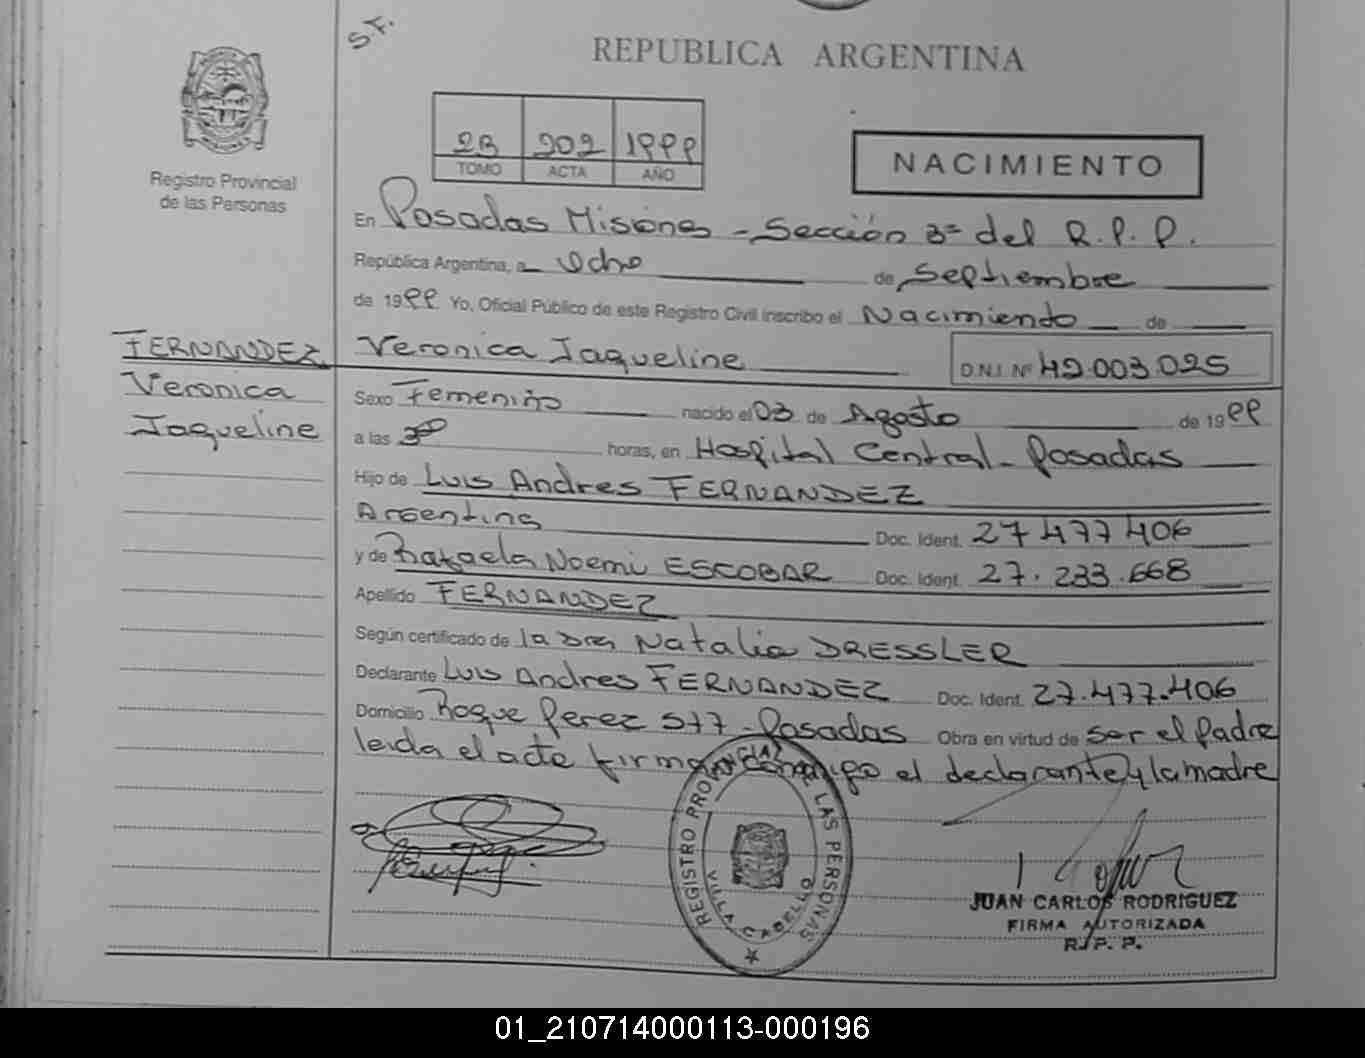 S.F.
REPUBLICA ARGENTINA
Registro Provincial
de las Personas
2B 202 1999
TOMO ACTA AÑO
NACIMIENTO
En Posadas Misiones - Sección 3ª del R.P.P.
República Argentina, a Ocho de Septiembre
de 1999 Yo, Oficial Público de este Registro Civil inscribo el Nacimiento de
FERNANDEZ
Veronica
Jaqueline
Veronica Jaqueline D.N.I. Nº 42.003.025
Sexo Femenino nacido el 03 de Agosto de 1999
a las horas, en Hospital Central - Posadas
Hijo de Luis Andres FERNANDEZ
Argentina Doc. Ident. 27 477 406
y de Rafaela Noemi ESCOBAR Doc. Ident. 27.233.668
Apellido FERNANDEZ
Según certificado de la Dra Natalia DRESSLER
Declarante Luis Andres FERNANDEZ Doc. Ident. 27.477.406
Domicilio Roque Perez 577 - Posadas Obra en virtud de ser el Padre
leida el acta firma conmigo el declarante y la madre
REGISTRO PROVINCIAL DE LAS PERSONAS
VILLA CABELLO
JUAN CARLOS RODRIGUEZ
FIRMA AUTORIZADA
R.P.P.
01_210714000113-000196